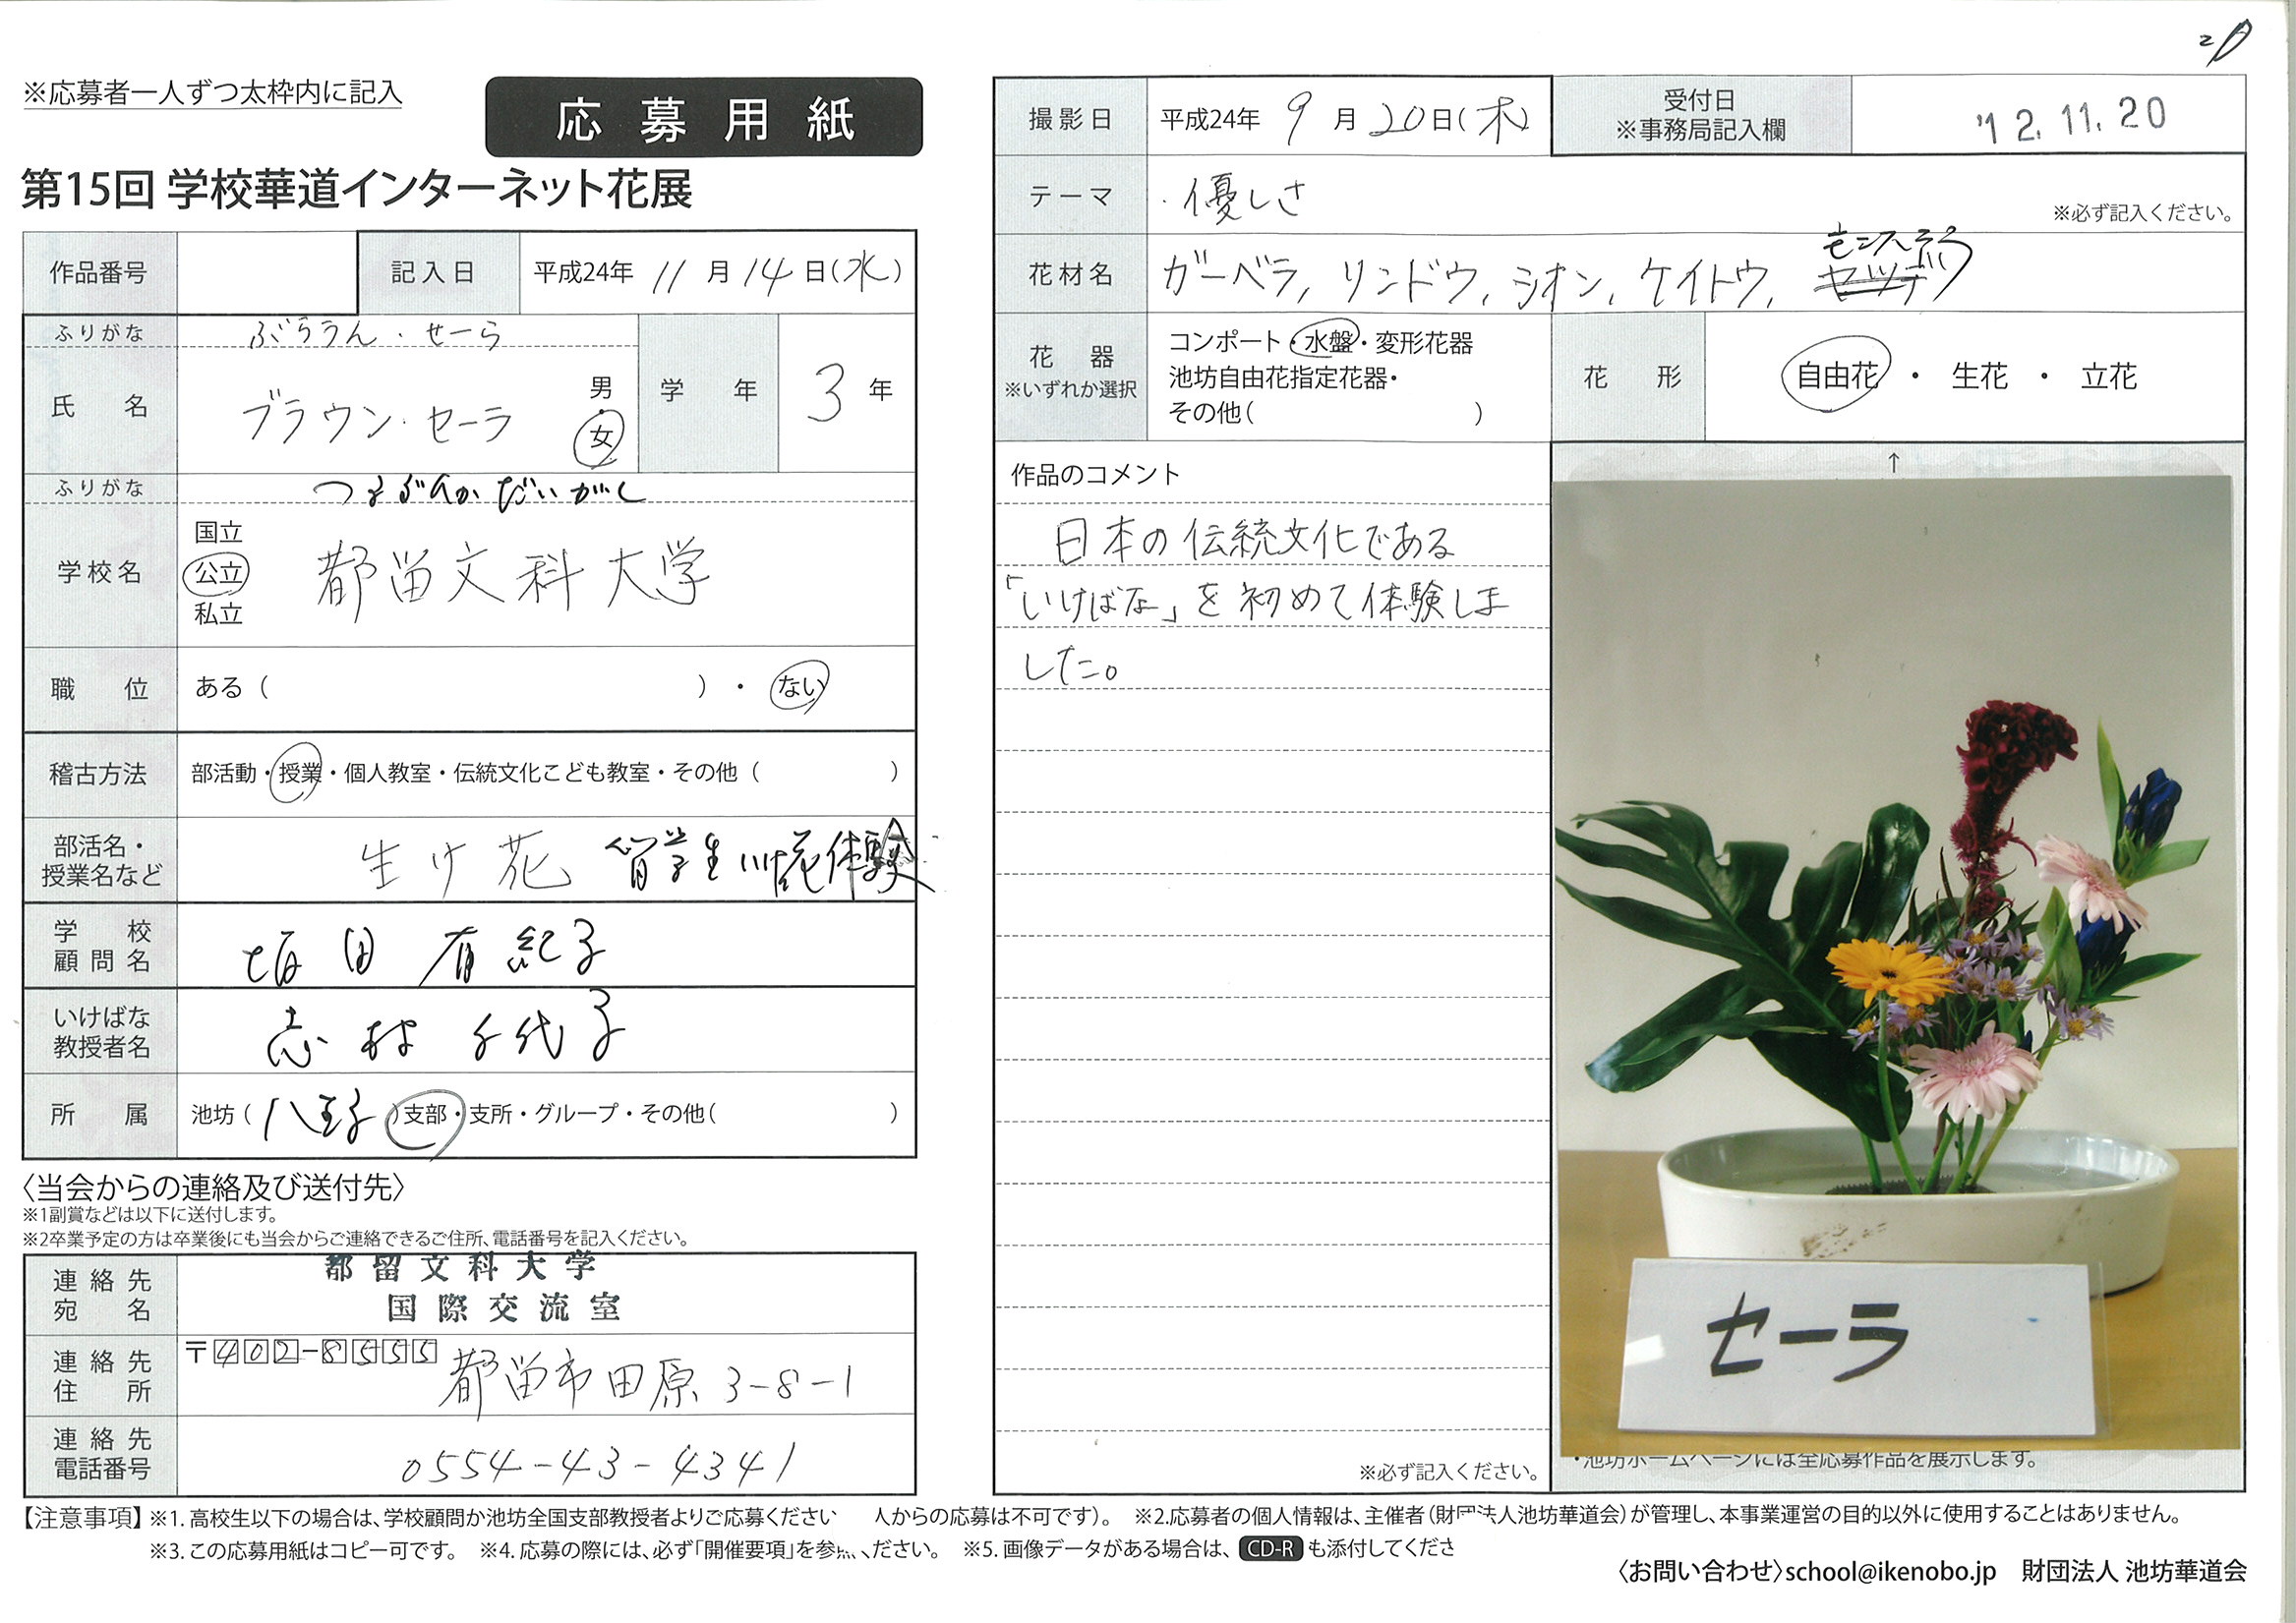 ※応募者一人ずつ太枠内に記入
応募用紙
第15回 学校華道インターネット花展
作品番号
記入日 平成24年 11月14日(水)
ふりがな ぶらうん・せーら
氏名 ブラウン・セーラ 男・女
学年 3年
ふりがな つるぶんかだいがく
学校名 国立 公立 私立 都留文科大学
職位 ある( )・ない
稽古方法 部活動・授業・個人教室・伝統文化こども教室・その他( )
部活名・授業名など 生け花 留学生いけ花体験
学校顧問名 坂田 有紀子
いけばな教授者名 志村 千代子
所属 池坊(八王子)支部・支所・グループ・その他( )
〈当会からの連絡及び送付先〉
※1副賞などは以下に送付します。
※2卒業予定の方は卒業後にも当会からご連絡できるご住所、電話番号を記入ください。
連絡先宛名 都留文科大学
国際交流室
連絡先住所 〒402-8555 都留市田原3-8-1
連絡先電話番号 0554-43-4341
撮影日 平成24年 9月20日(木)
受付日 ※事務局記入欄 '12.11.20
テーマ 優しさ ※必ず記入ください。
花材名 ガーベラ, リンドウ, シオン, ケイトウ, モンステラ
花器 ※いずれか選択 コンポート・水盤・変形花器
池坊自由花指定花器・
その他( )
花形 自由花・生花・立花
作品のコメント
日本の伝統文化である
「いけばな」を初めて体験しま
した。
※必ず記入ください。
↑
セーラ
・池坊ホームページには全応募作品を展示します。
【注意事項】※1. 高校生以下の場合は、学校顧問か池坊全国支部教授者よりご応募ください 人からの応募は不可です)。 ※2.応募者の個人情報は、主催者(財団法人池坊華道会)が管理し、本事業運営の目的以外に使用することはありません。
※3. この応募用紙はコピー可です。 ※4. 応募の際には、必ず「開催要項」を参 ください。 ※5. 画像データがある場合は、CD-Rも添付してくださ
〈お問い合わせ〉school@ikenobo.jp 財団法人 池坊華道会